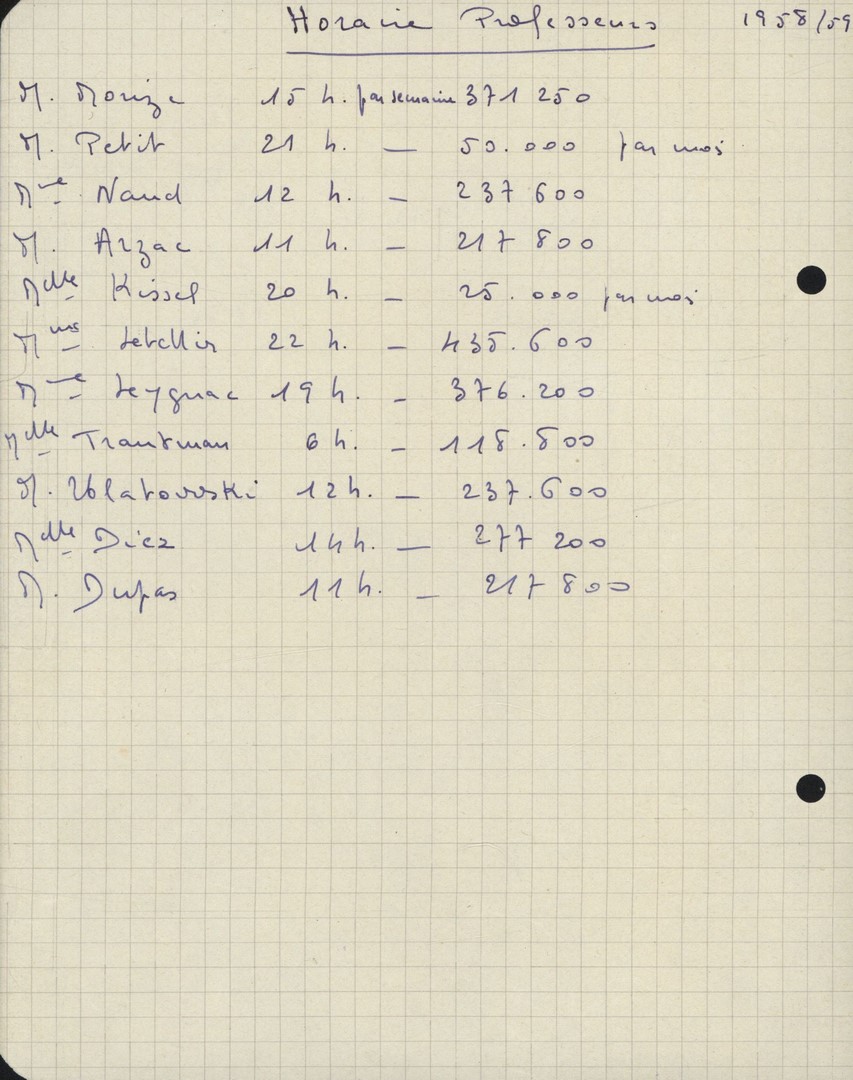 Horaire Professeurs 1958/59
M. Morize 15 h. par semaine 371 250
M. Petit 21 h. — 50.000 par mois
Mme Naud 12 h. — 237 600
M. Arzac 11 h. — 217 800
Mlle Kissel 20 h. — 25.000 par mois
22 h. — 435.600
Mme Leygnac 19 h. — 376.200
Mlle Trautman 6 h. — 118.800
M. 12 h. — 237.600
Mlle Diez 14 h. — 277 200
M. Dupas 11 h. — 217 800